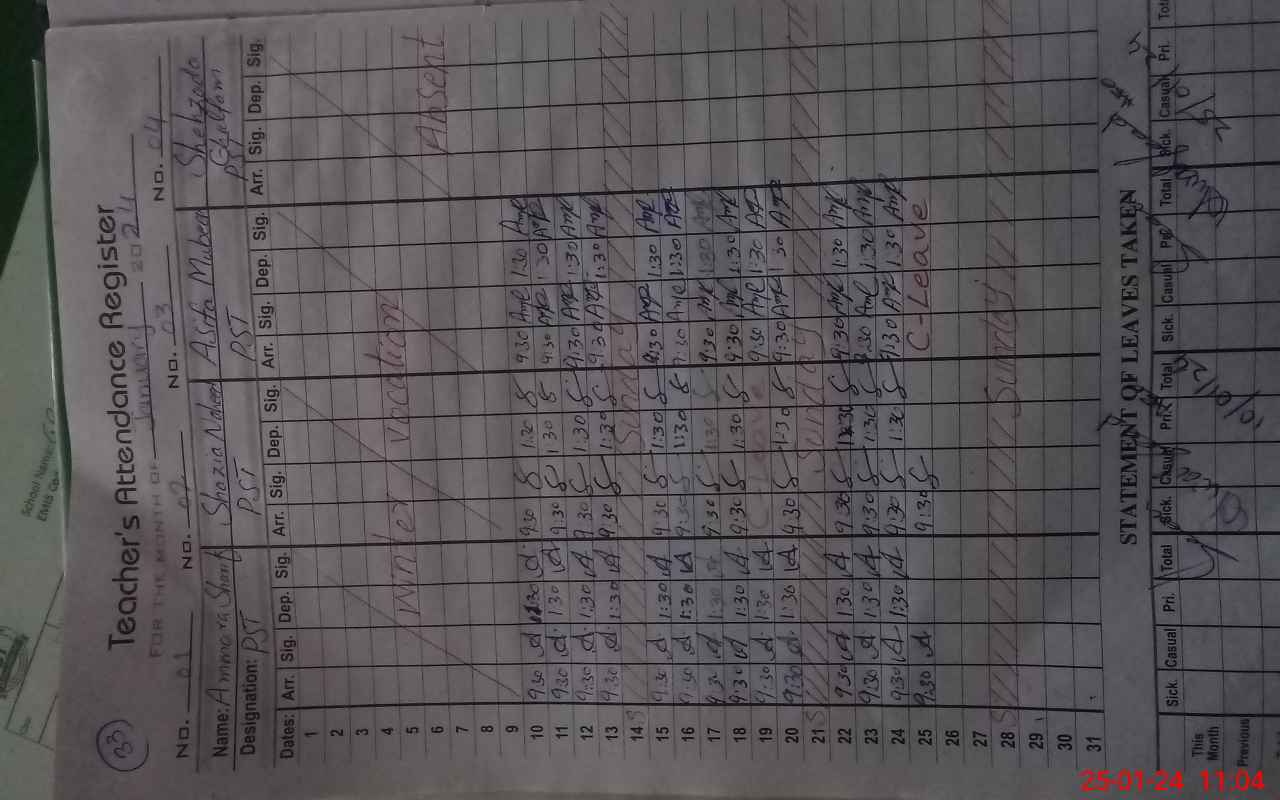 School Name:
EMIS Co
33
Teacher's Attendance Register
FOR THE MONTH OF January 2024
No. 01 No. 02 No. 03 No. 04
Name: Ammara Sharif Shazia Naheed Asifa Mubeen Shehzada Gulfam
Designation: PST PST PST PST
Dates: Arr. Sig. Dep. Sig. Arr. Sig. Dep. Sig. Arr. Sig. Dep. Sig. Arr. Sig. Dep. Sig.
1
2
3
4 Winter Vacation
5 Absent
6
7
8
9
10 9:30 1:30 9:30 1:30 9:30 1:30
11 9:30 1:30 9:30 1:30 9:30 1:30
12 9:30 1:30 9:30 1:30 9:30 1:30
13 9:30 1:30 9:30 1:30 9:30 1:30
14 S Sunday
15 9:30 1:30 9:30 1:30 9:30 1:30
16 9:30 1:30 9:30 1:30 9:30 1:30
17 9:30 1:30 9:30 1:30 9:30 1:30
18 9:30 1:30 9:30 1:30 9:30 1:30
19 9:30 1:30 C-Leave 9:30 1:30
20 9:30 1:30 9:30 1:30 9:30 1:30
21 S Sunday
22 9:30 1:30 9:30 1:30 9:30 1:30
23 9:30 1:30 9:30 1:30 9:30 1:30
24 9:30 1:30 9:30 1:30 9:30 1:30
25 9:30 9:30 C-Leave
26
27
28 S Sunday
29
30
31
STATEMENT OF LEAVES TAKEN
Sick. Casual Pri. Total Sick. Casual Pri. Total Sick. Casual Pri. Total Sick. Casual Pri. Total
This Month
Previous
25-01-24 11:04